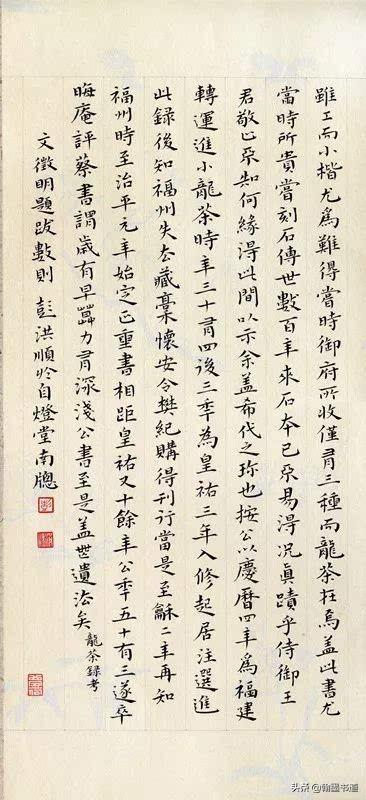 雖工而小楷尤爲難得當時御府所收僅有三種而龍茶在焉蓋此書尤
當時所貴嘗刻石傳世數百年來石本已不易得況真蹟乎侍御王
君敬止不知何緣得此間以示余蓋希代之珎也按公以慶曆四年爲福建
轉運進小龍茶時年三十有四後三年為皇祐三年入修起居注選進
此錄後知福州失去藏稾懷安令樊紀購得刊行當是至龢二年再知
福州時至治平元年始定正重書相距皇祐又十餘年公年五十有三遂卒
晦庵評蔡書謂歲有早晶力有深淺公書至是蓋無遺法矣 龍茶錄考
文徵明題跋數則 彭洪順於自燈堂南牕
头条@翰墨书道